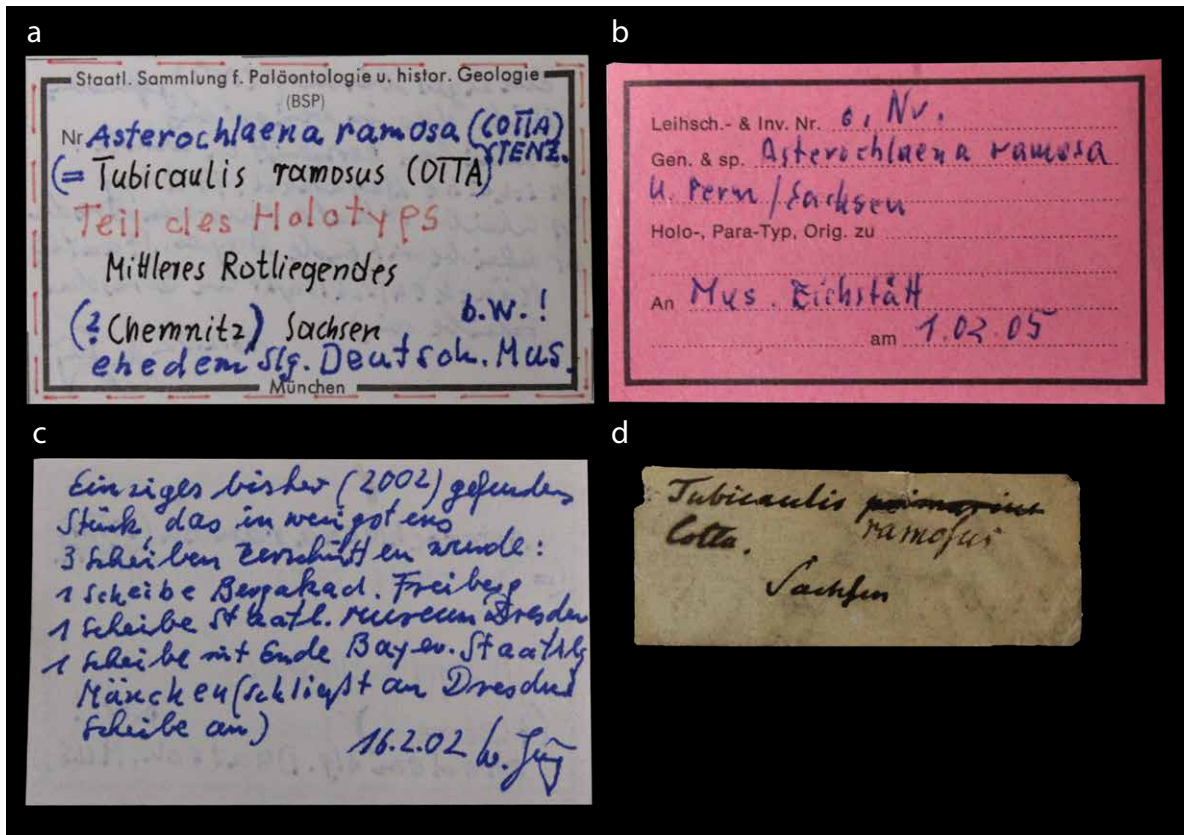 a
Staatl. Sammlung f. Paläontologie u. histor. Geologie
(BSP)
Nr Asterochlaena ramosa (COTTA)
STENZ.
(= Tubicaulis ramosus (COTTA)
Teil des Holotyps
Mittleres Rotliegendes
b.W.!
(? Chemnitz) Sachsen
ehedem Slg. Deutsch. Mus.
München
b
Leihsch.- & Inv. Nr. o. Nr.
Gen. & sp. Asterochlaena ramosa
U. Perm/Sachsen
Holo-, Para-Typ, Orig. zu
An Mus. Eichstätt
am 1.02.05
c
Einziges bisher (2002) gefundenes
Stück, das in wenigstens
3 Scheiben zerschnitten wurde:
1 Scheibe Bergakad. Freiberg
1 Scheibe Staatl. Museum Dresden
1 Scheibe mit Ende Bayer. Staatslg
München (schließt an Dresdner
Scheibe an)
16.2.02 W. Jung
d
Tubicaulis
ramosus
Cotta.
Sachsen